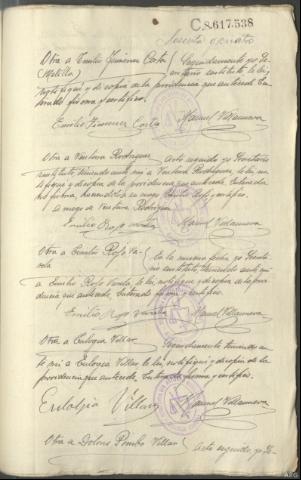 C.8.617.538
Sesenta y cuatro
Otra a Emilio Jimenez Costa } Seguidamente yo Se-
(Melilla)
notifiqué y di copia de la providencia que antecede En-
terado firma y certifico.
Emilio Jimenez Costa Manuel Villanueva
Otra a Ventura Rodriguez Acto seguido yo Secretario
sustituto, teniendo ante mi a Ventura Rodriguez, le no-
tifique y di copia de la providencia que antecede, Enterado
no firma, haciendolo a su ruego certifico.
a ruego de Ventura Rodriguez
Emilio Rojo Varela Manuel Villanueva
Otra a Emilio Rojo Va- } En la misma fecha, yo Secreta-
rela rio sustituto, teniendo ante mi
a Emilio Rojo Varela, le lei, notifiqué y di copia de la provi-
dencia que antecede, Enterado firma y certifico.
Emilio Rojo Varela Manuel Villanueva
Otra a Eulogia Villar Seguidamente teniendo an-
te mi a Eulogia Villar le lei, notifiqué y di copia de la
providencia que antecede, Enterada firma y certifico.
Eulogia Villar Manuel Villanueva
Otra a Dolores Pombo Villar } Acto seguido yo Se-